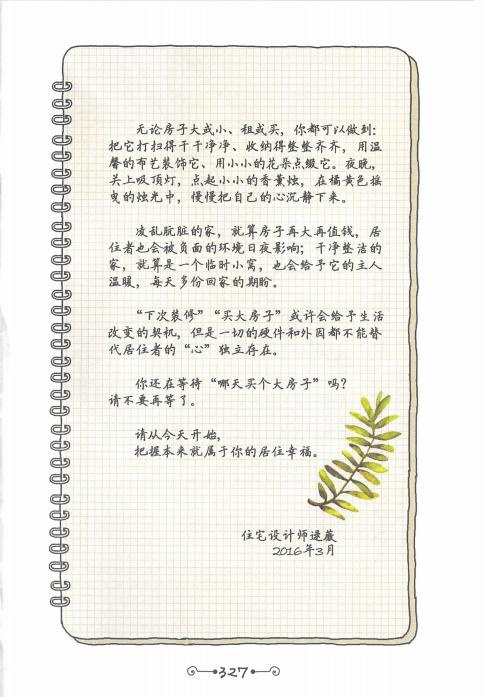 无论房子大或小、租或买，你都可以做到：
把它打扫得干干净净、收纳得整整齐齐，用温
馨的布艺装饰它、用小小的花朵点缀它。夜晚，
关上吸顶灯，点起小小的香薰烛，在橘黄色摇
曳的烛光中，慢慢把自己的心沉静下来。
凌乱肮脏的家，就算房子再大再值钱，居
住者也会被负面的环境日夜影响；干净整洁的
家，就算是一个临时小窝，也会给予它的主人
温暖，每天多份回家的期盼。
“下次装修”“买大房子”或许会给予生活
改变的契机，但是一切的硬件和外因都不能替
代居住者的“心”独立存在。
你还在等待“哪天买个大房子”吗？
请不要再等了。
请从今天开始，
把握本来就属于你的居住幸福。
住宅设计师逯薇
2016年3月
327